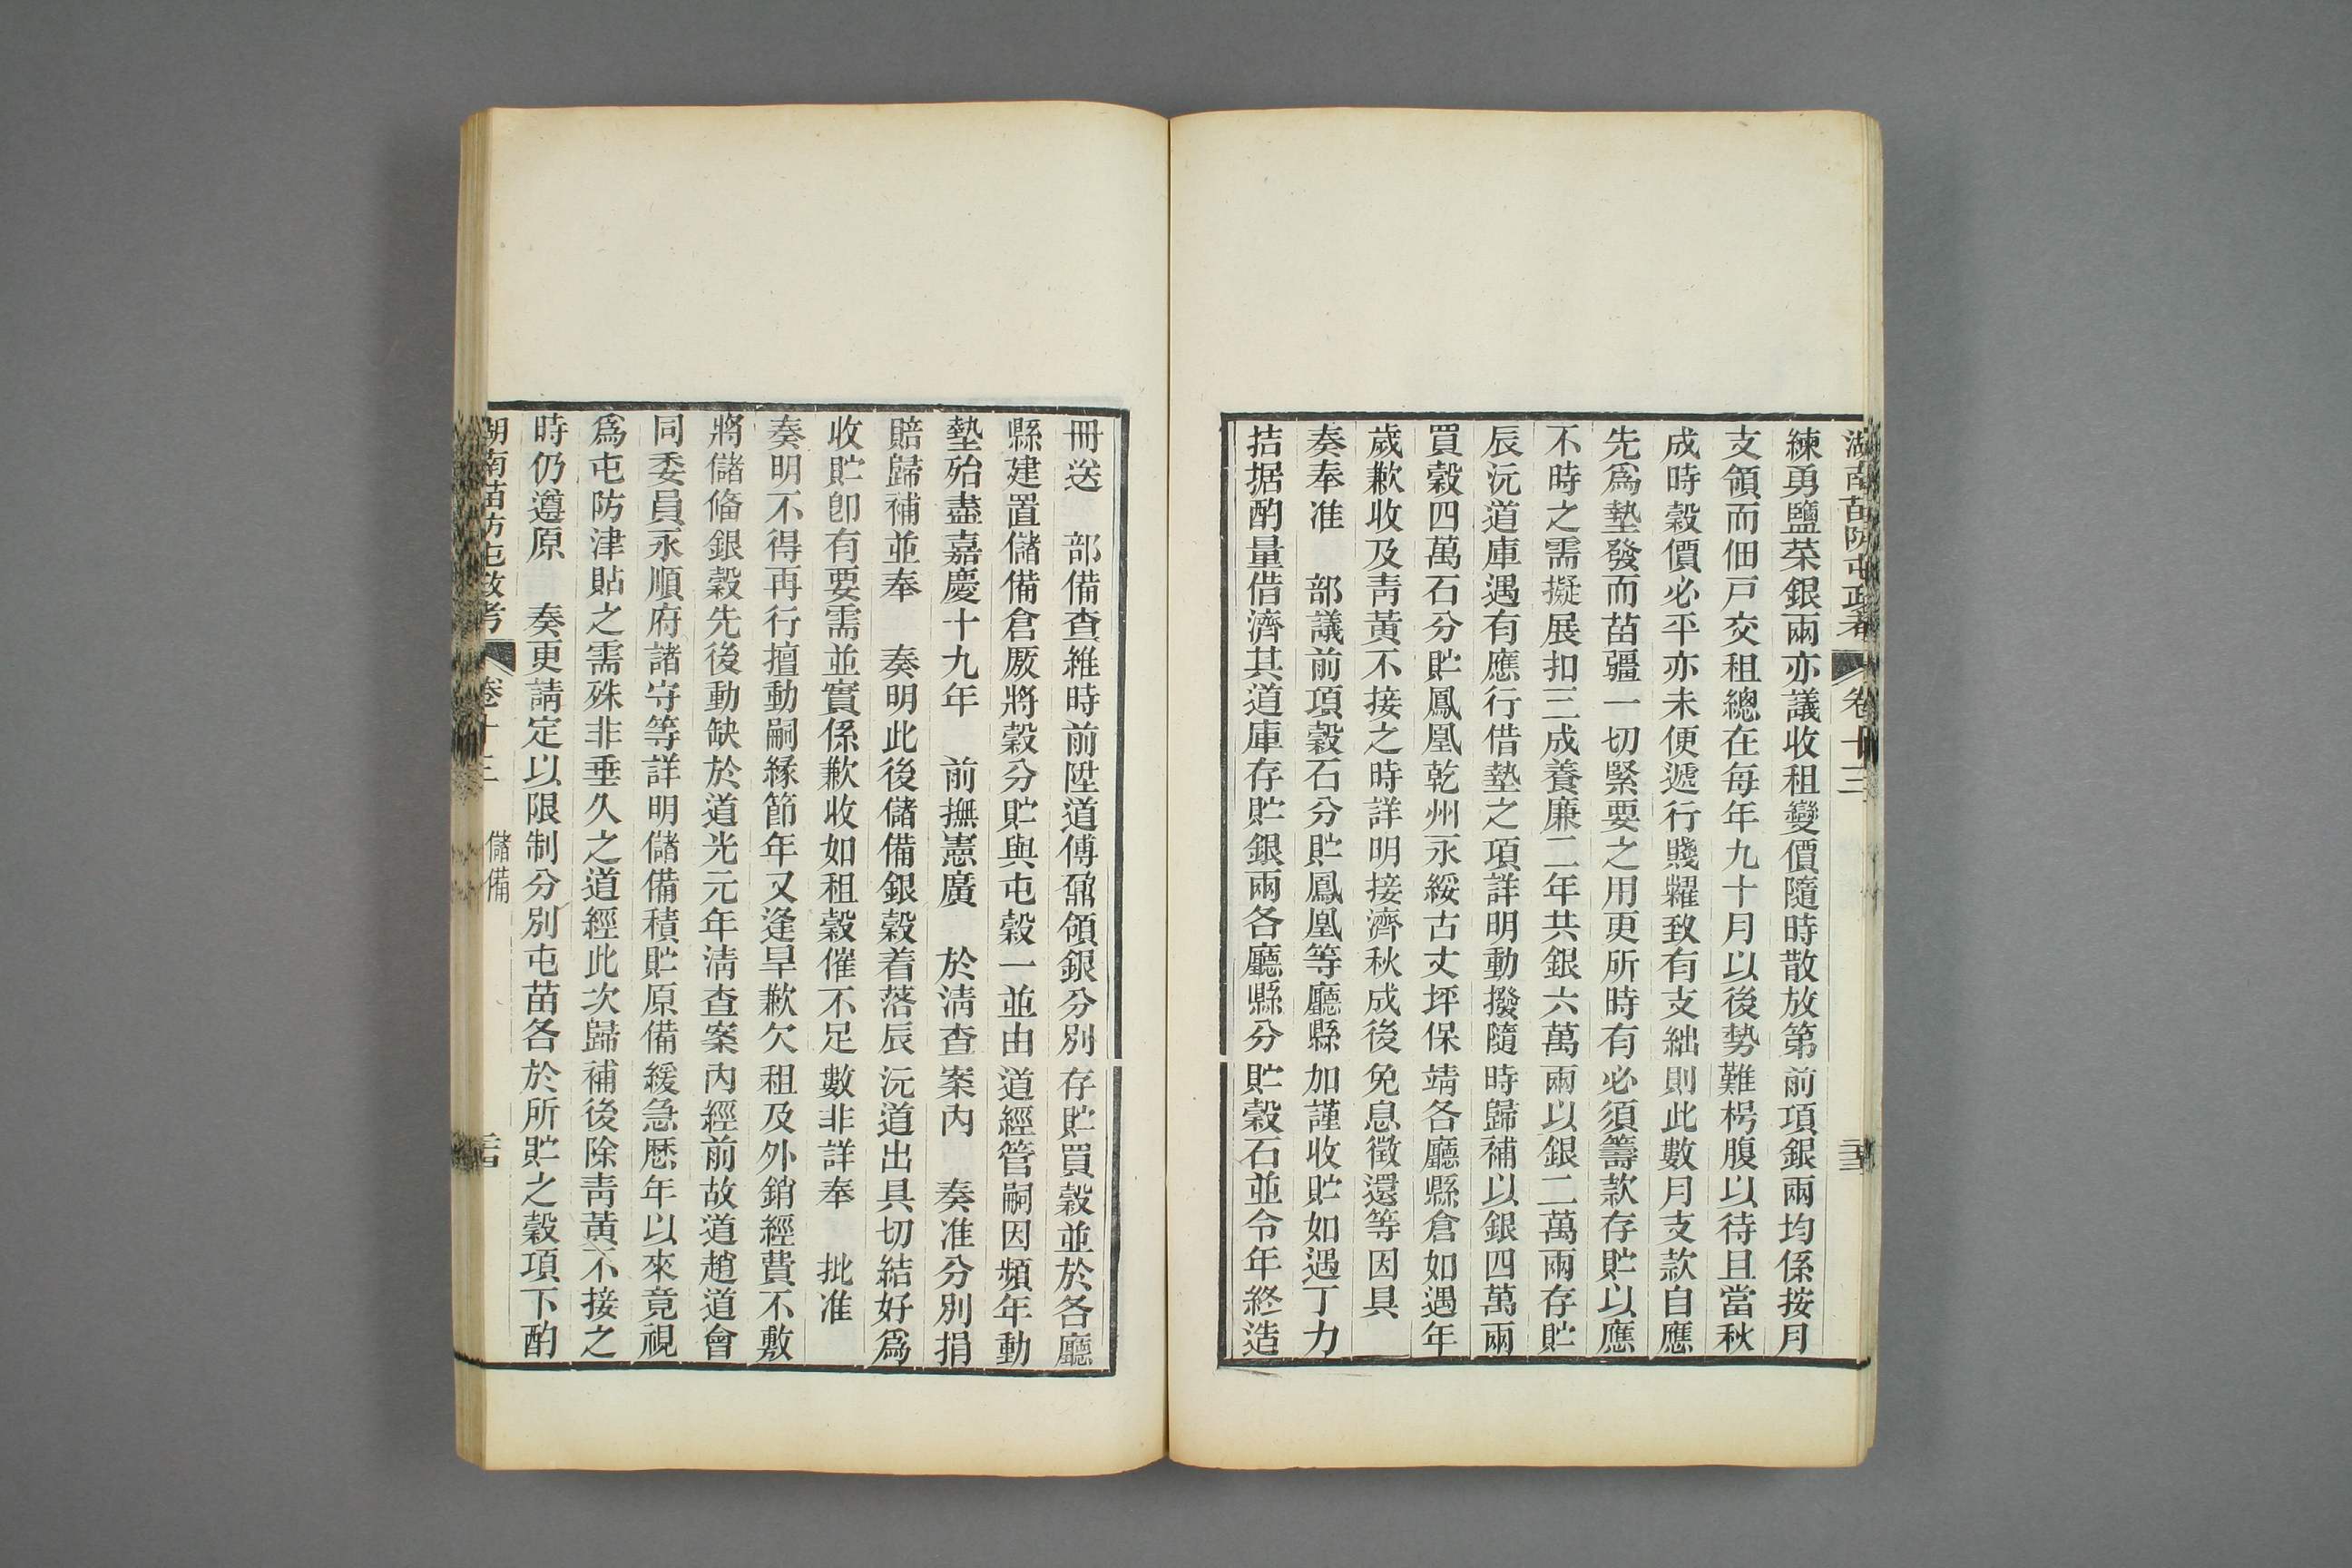 湖南苗防屯政考 卷十三
練勇鹽菜銀兩亦議收租變價隨時散放第前項銀兩均係按月
支領而佃戸交租總在每年九十月以後勢難枵腹以待且當秋
成時穀價必平亦未便遽行賤糶致有支絀則此數月支款自應
先爲墊發而苗疆一切緊要之用更所時有必須籌款存貯以應
不時之需擬展扣三成養廉二年共銀六萬兩以銀二萬兩存貯
辰沅道庫遇有應行借墊之項詳明動撥隨時歸補以銀四萬兩
買穀四萬石分貯鳳凰乾州永綏古丈坪保靖各廳縣倉如遇年
歲歉收及靑黃不接之時詳明接濟秋成後免息徵還等因具
奏奉准 部議前項穀石分貯鳳凰等廳縣加謹收貯如遇丁力
拮据酌量借濟其道庫存貯銀兩各廳縣分貯穀石並令年終造
冊送 部備查維時前陞道傅鼐領銀分別存貯買穀並於各廳
縣建置儲備倉厫將穀分貯與屯穀一並由道經管嗣因頻年動
墊殆盡嘉慶十九年 前撫憲廣 於淸查案內 奏准分別捐
賠歸補並奉 奏明此後儲備銀穀着落辰沅道出具切結好爲
收貯卽有要需並實係歉收如租穀催不足數非詳奉 批准
奏明不得再行擅動嗣緣節年又逢旱歉欠租及外銷經費不敷
將儲俻銀穀先後動缺於道光元年淸查案內經前故道趙道會
同委員永順府諸守等詳明儲備積貯原備緩急歷年以來竟視
爲屯防津貼之需殊非垂久之道經此次歸補後除靑黃不接之
時仍遵原 奏更請定以限制分別屯苗各於所貯之穀項下酌
湖南苗防屯政考 卷十三 儲備